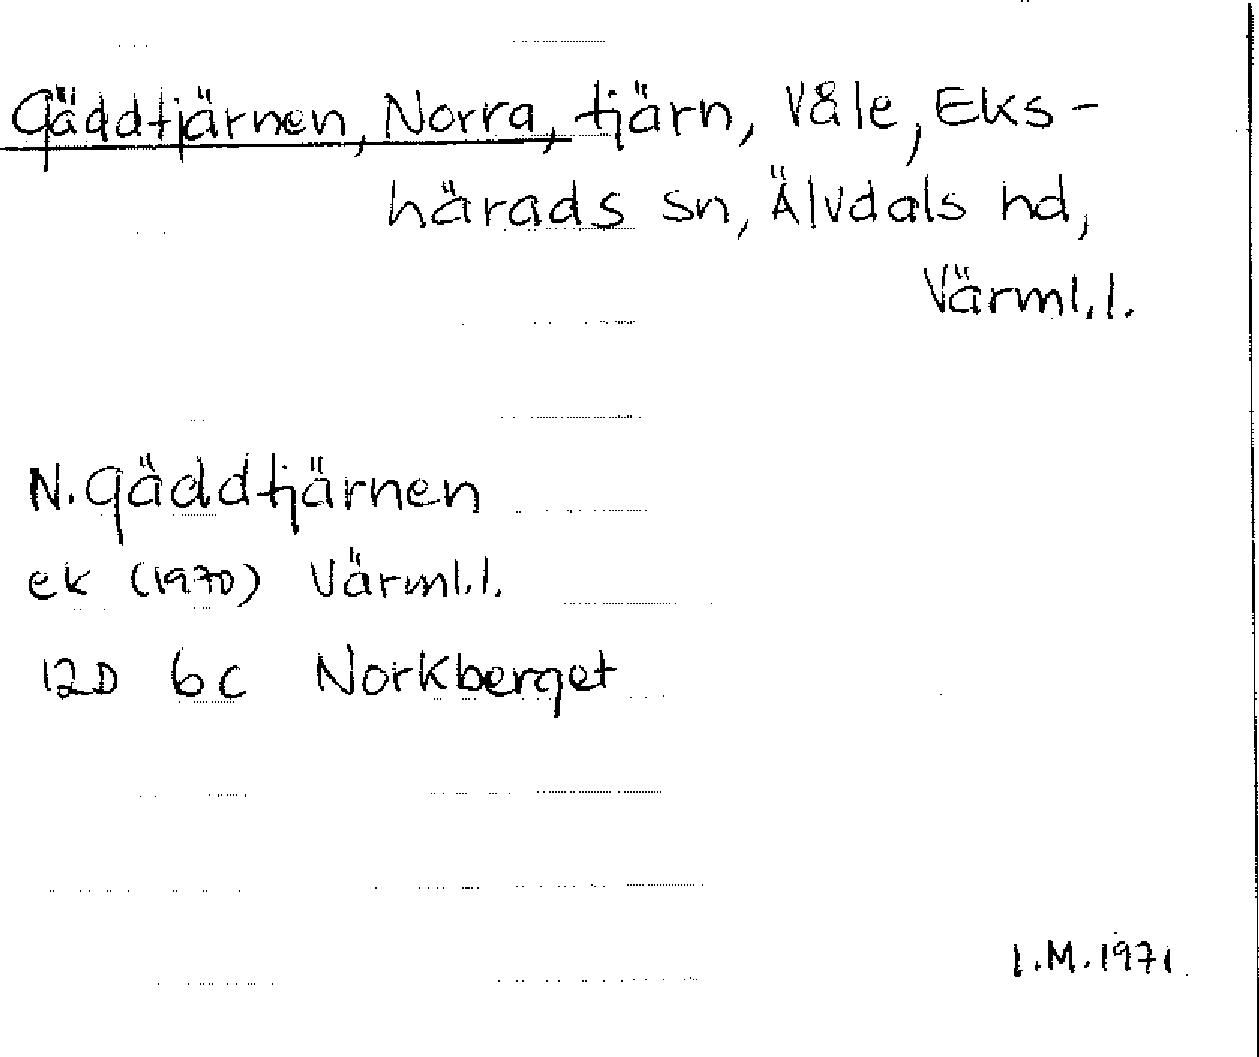 Gäddtjärnen, Norra, tjärn, Våle, Eks-
härads sn, Älvdals hd,
Värml.l.
N. Gäddtjärnen
ek (1970) Värml.l.
12D 6c Norkberget
I.M. 1971